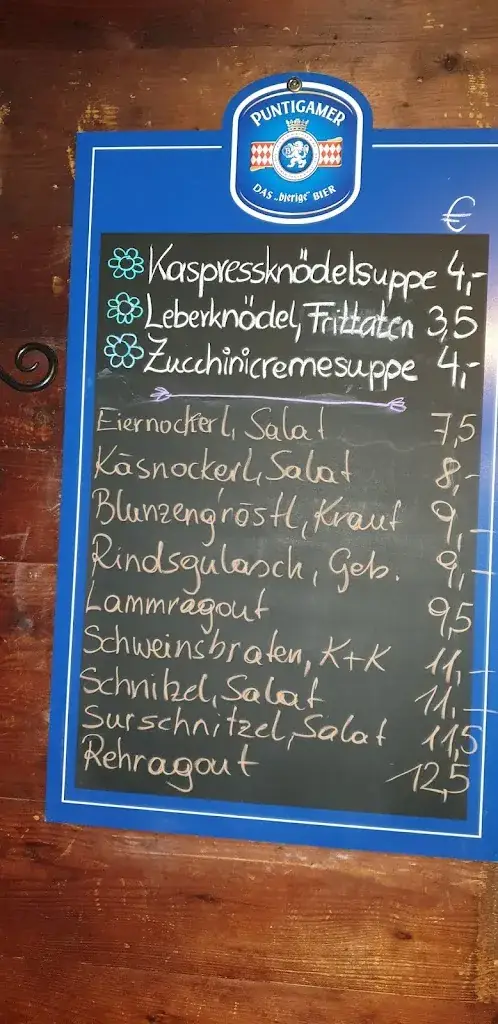 PUNTIGAMER
DAS "bierige" BIER
€
Kaspressknödelsuppe 4,-
Leberknödel, Frittaten 3,5
Zucchinicremesuppe 4,-
Eiernockerl, Salat 7,5
Käsnockerl, Salat 8,-
Blunzengröstl, Kraut 9,-
Rindsgulasch, Geb. 9,-
Lammragout 9,5
Schweinsbraten, K+K 11,-
Schnitzel, Salat 11,-
Surschnitzel, Salat 11,5
Rehragout 12,5